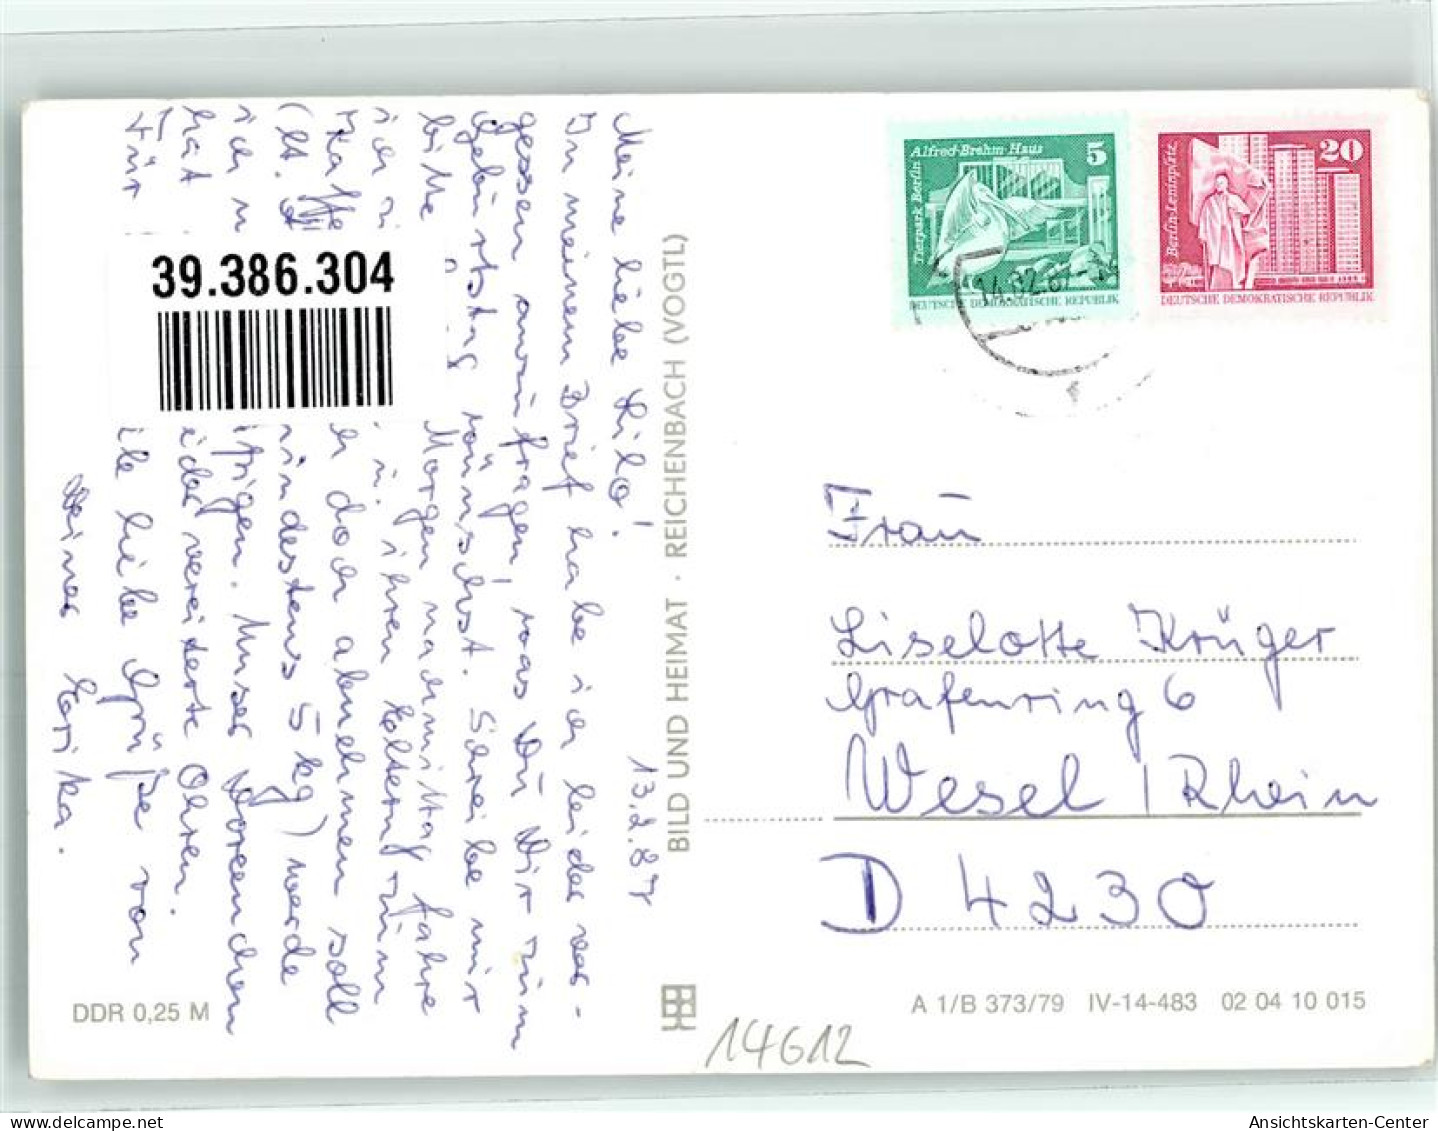 13.2.87
Meine liebe Lilo!
In meinem Brief habe ich leider ver-
gessen anzufragen, was Du Dir zum
Geburtstag wünschst. Schreibe mir
bitte Morgen nachmittag fahre
ich in ihren Eltern zum
Kaffe doch abnehmen soll
(lt. mindestens 5 kg) werde
ich m Unser Dorenchen
hat vereiterte Ohren.
Für liebe Grüße von
Deiner Erika.
39.386.304
DDR 0,25 M
BILD UND HEIMAT · REICHENBACH (VOGTL)
Tierpark Berlin
Alfred-Brehm-Haus
5
DEUTSCHE DEMOKRATISCHE REPUBLIK
Berlin-Leninplatz
20
DEUTSCHE DEMOKRATISCHE REPUBLIK
14.02.87
Frau
Liselotte Krüger
Grafenring 6
Wesel / Rhein
D 4230
A 1/B 373/79 IV-14-483 02 04 10 015
14612
Ansichtskarten-Center